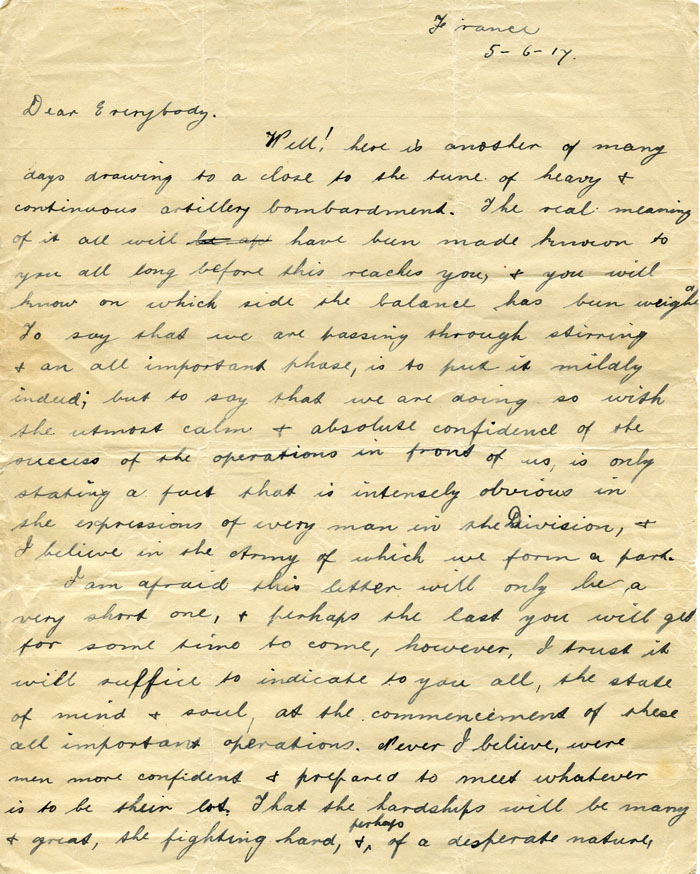 France
5-6-17.
Dear Everybody.
Well! here is another of many
days drawing to a close to the tune of heavy &
continuous artillery bombardment. The real meaning
of it all will have been made known to
you all long before this reaches you, & you will
know on which side the balance has been weighed
To say that we are passing through stirring
& an all important phase, is to put it mildly
indeed; but to say that we are doing so with
the utmost calm & absolute confidence of the
success of the operations in front of us, is only
stating a fact that is intensely obvious in
the expressions of every man in the Division, &
I believe in the Army of which we form a part.
I am afraid this letter will only be a
very short one, & perhaps the last you will get
for some time to come, however, I trust it
will suffice to indicate to you all, the state
of mind & soul, at the commencement of these
all important operations. Never I believe, were
men more confident & prepared to meet whatever
is to be their lot. That the hardships will be many
& great, the fighting hard, &, perhaps of a desperate nature,